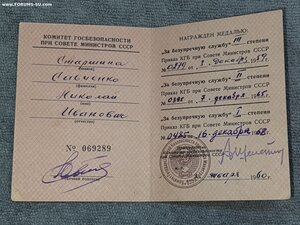 www.FORUMS-SU.com
КОМИТЕТ ГОСБЕЗОПАСНОСТИ
ПРИ СОВЕТЕ МИНИСТРОВ СССР
Старшина
(звание)
(фамилия)
Николай
(имя)
Иванович
(отчество)
№ 069289
НАГРАЖДЕН МЕДАЛЬЮ:
„За безупречную службу“ III степени
Приказ КГБ при Совете Министров СССР
„За безупречную службу“ II степени
Приказ КГБ при Совете Министров СССР
7 декабря 1965 г.
„За безупречную службу“ I степени
Приказ КГБ при Совете Министров СССР
№ 0465 16 декабря 1968 г.
1960 г.